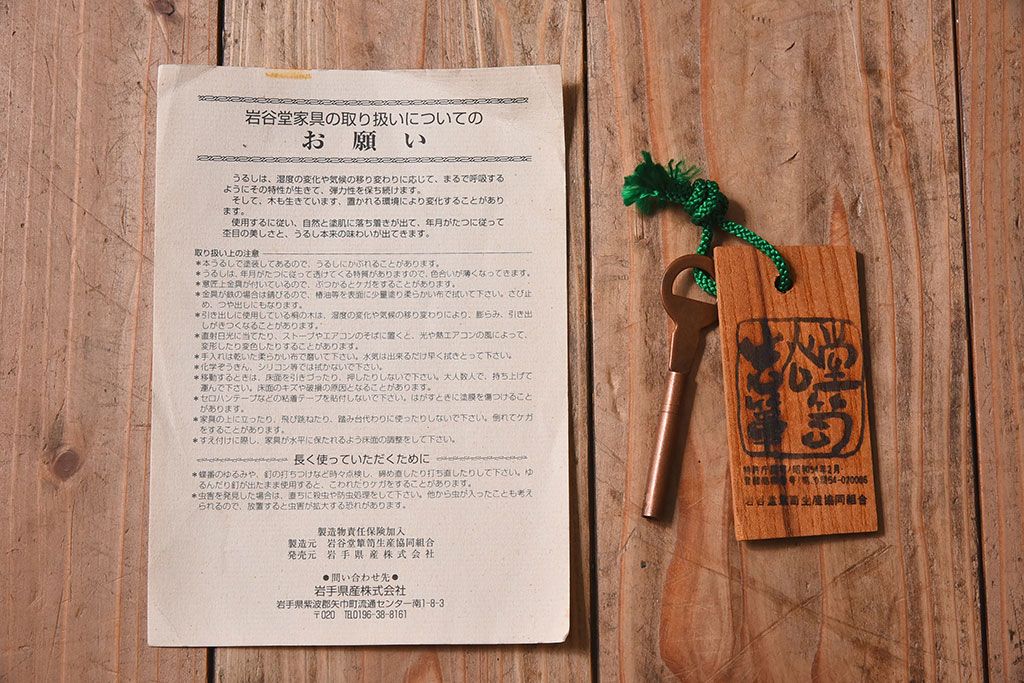 岩谷堂家具の取り扱いについての
お願い
うるしは、湿度の変化や気候の移り変わりに応じて、まるで呼吸する
ようにその特性が生きて、弾力性を保ち続けます。
そして、木も生きています、置かれる環境により変化することがあり
ます。
使用するに従い、自然と塗肌に落ち着きが出て、年月がたつに従って
杢目の美しさと、うるし本来の味わいが出てきます。
取り扱い上の注意
*本うるしで塗装してあるので、うるしにかぶれることがあります。
*うるしは、年月がたつに従って透けてくる特質がありますので、色合いが薄くなってきます。
*意匠上金具が付いているので、ぶつかるとケガをすることがあります。
*金具が鉄の場合は錆びるので、椿油等を表面に少量塗り柔らかい布で拭いて下さい。さび止
め、つや出しにもなります。
*引き出しに使用している桐の木は、湿度の変化や気候の移り変わりにより、膨らみ、引き出
しがきつくなることがあります。
*直射日光に当てたり、ストーブやエアコンのそばに置くと、光や熱エアコンの風によって、
変形したり変色したりすることがあります。
*手入れは乾いた柔らかい布で磨いて下さい。水気は出来るだけ早く拭きとって下さい。
*化学ぞうきん、シリコン等では拭かないで下さい。
*移動するときは、床面を引きづったり、押したりしないで下さい。大人数人で、持ち上げて
運んで下さい。床面のキズや破損の原因となることがあります。
*セロハンテープなどの粘着テープを貼付しないで下さい。はがすときに塗膜を傷つけること
があります。
*家具の上に立ったり、飛び跳ねたり、踏み台代わりに使ったりしないで下さい。倒れてケガ
をすることがあります。
*すえ付けに際し、家具が水平に保たれるよう床面の調整をして下さい。
長く使っていただくために
*蝶番のゆるみや、釘の打ちつけなど時々点検し、締め直したり打ち直したりして下さい。ゆ
るんだり釘が出たまま使用すると、こわれたりケガをすることがあります。
*虫害を発見した場合は、直ちに殺虫や防虫処理をして下さい。他から虫が入ったことも考え
られるので、放置すると虫害が拡大する恐れがあります。
製造物責任保険加入
製造元 岩谷堂箪笥生産協同組合
発売元 岩手県産株式会社
●問い合わせ先●
岩手県産株式会社
岩手県紫波郡矢巾町流通センター南1-8-3
〒020 TEL0196-38-8161
岩谷堂箪笥
特許庁 昭和54年2月
岩谷堂箪笥生産協同組合